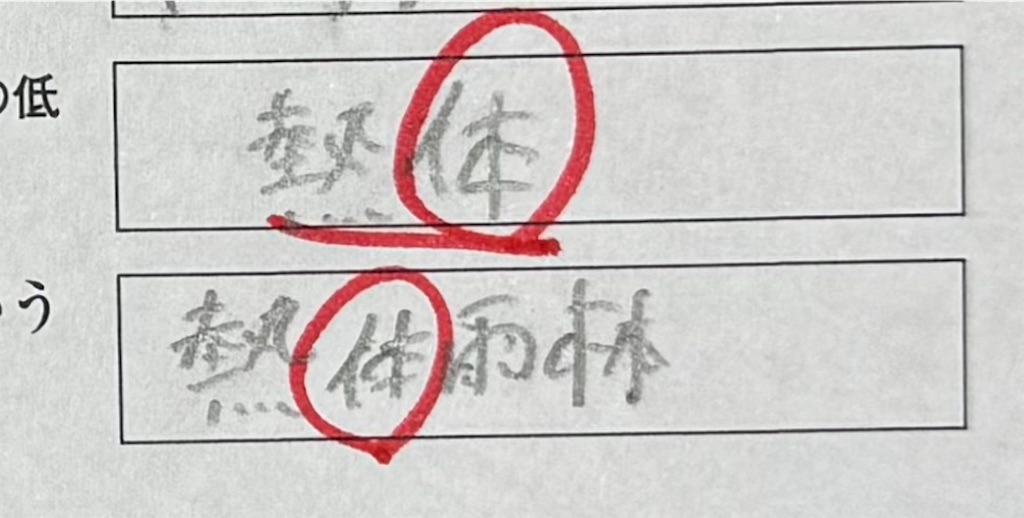 の低
熱体
う
熱体雨林